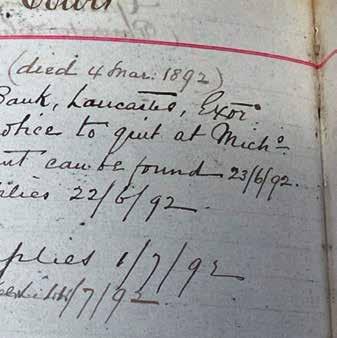 Court
(died 4 Mar: 1892)
Bank, Lancaster, Exor
notice to quit at Michs
can be found 23/6/92.
22/6/92.
plies 1/7/92
/7/92